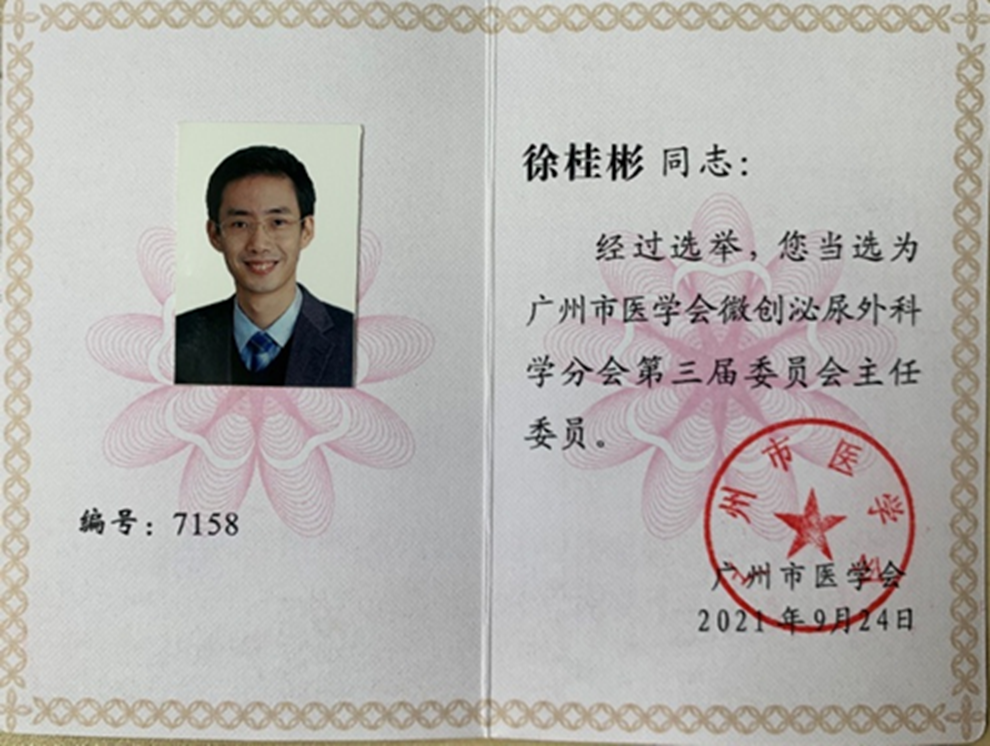 编号：7158
徐桂彬 同志：
经过选举，您当选为
广州市医学会微创泌尿外科
学分会第三届委员会主任
委员。
广州市医学会
广州市医学会
2021年9月24日